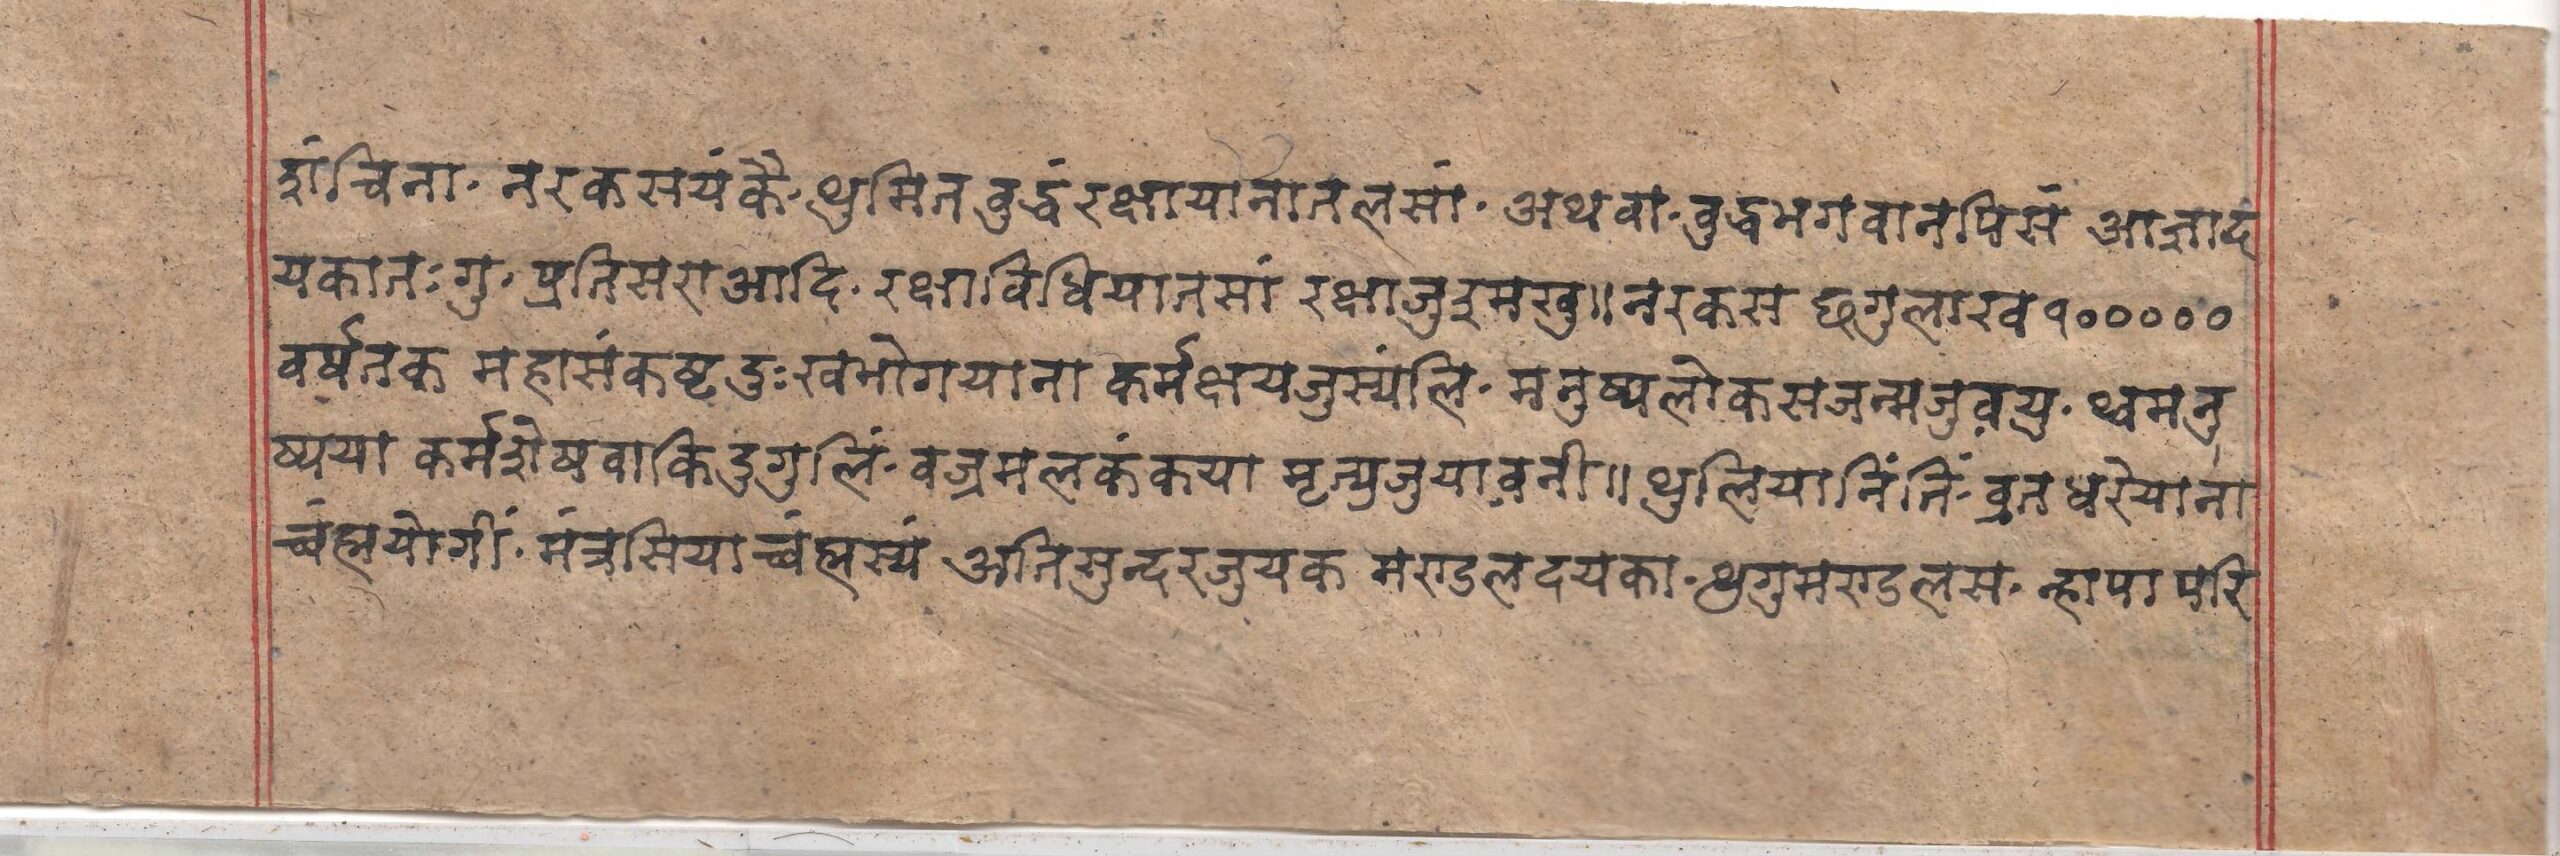 शंचिना· नरकसयंकै· थुमित वुद्धंरक्षायानातलसां· अथवा· वुद्धभगवानपिसं आज्ञाद
यकातः गु· प्रतिसराआदि· रक्षाविधियातसां रक्षाजुइमखु॥ नरकस छगुलाख १०००००
वर्षतक महासंकष्ट दुःखभोगयाना कर्मक्षयजुस्यंलि· मनुष्यलोकसजन्मजुवयु· थ्वमनु
ष्यया कर्मशेषवाकिदुगुलिं· वज्रमलकंकया मृत्युजुयावनी॥ थुलियानिंतिं· व्रतधरेयाना
च्वंह्मयोगीं· मंत्रसियाच्वंह्मस्यं अतिसुन्दरजुयक मण्डलदयका· थुगुमण्डलस· न्हापा परि